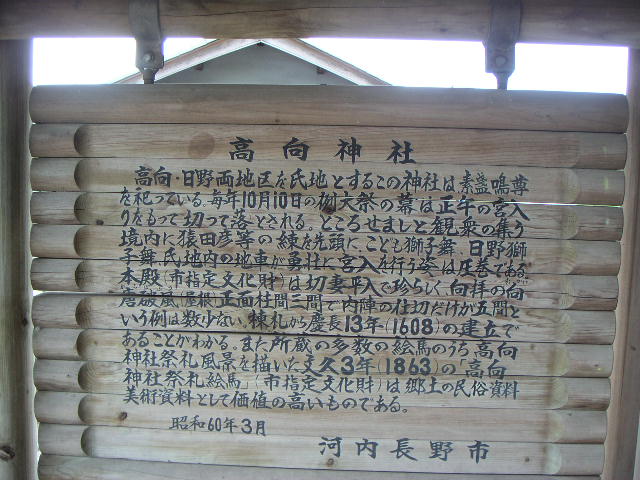 高向神社
高向・日野両地区を氏地とするこの神社は素盞嗚尊
を祀っている。毎年10月10日の例大祭の幕は正午の宮入
りをもって切って落とされる。ところせましと観衆の集う
境内に猿田彦等の練を先頭に、こども獅子舞、日野獅
子舞、氏地内の地車が勇壮に宮入を行う姿は圧巻である。
本殿(市指定文化財)は切妻平入で珍らしく向拝の向
唐破風屋根、正面柱間三間で内陣の仕切だけが五間と
いう例は数少ない。棟札から慶長13年(1608)の建立で
あることがわかる。また所蔵の多数の絵馬のうち、高向
神社祭礼風景を描いた文久3年(1863)の「高向
神社祭礼絵馬」(市指定文化財)は郷土の民俗資料
美術資料として価値の高いものである。
昭和60年3月
河内長野市